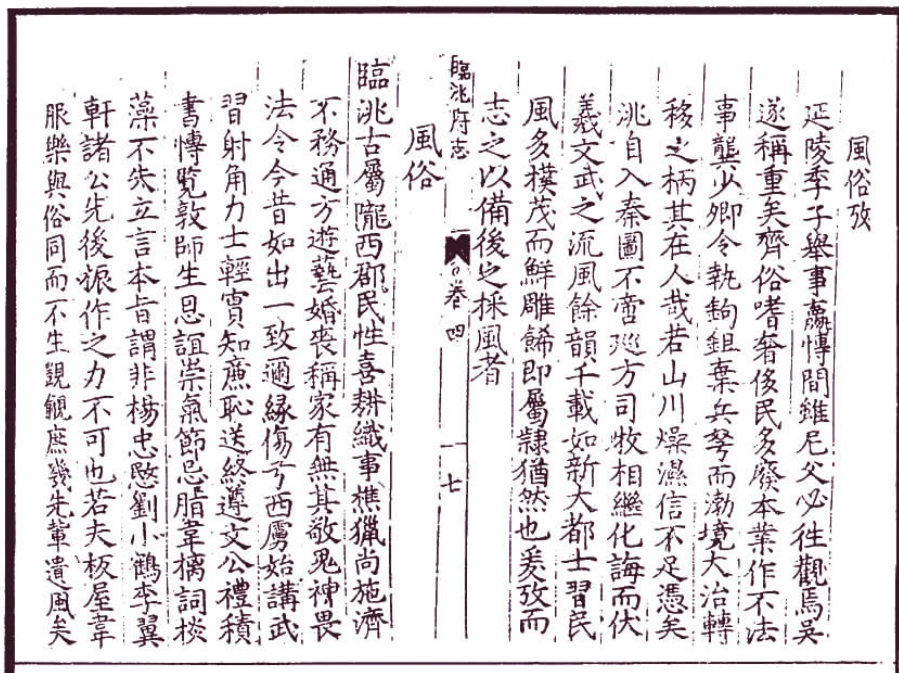 風俗攷
延陵季子舉事嬴愽間雖尼父必徃觀焉吳
遂稱重矣齊俗嗜奢侈民多廢本業作不法
事龔少卿令執鉤鉏棄兵弩而渤境大治轉
移之柄其在人哉若山川燥濕信不足憑矣
洮自入秦圖不啻廵方司牧相繼化誨而伏
羲文武之流風餘韻千載如新大都士習民
風多樸茂而鮮雕餙即屬隸猶然也爰攷而
志之以備後之採風者
臨洮府志
卷四
一七
風俗
臨洮古屬隴西郡民性喜耕織事樵獵尚施濟
不務通方遊藝婚喪稱家有無其敬鬼神畏
法令今昔如出一致邇緣傷于西虜始講武
習射角力士輕賓知亷恥送終遵文公禮積
書愽覽敦師生恩誼崇氣節忌脂韋摛詞掞
藻不失立言本旨謂非楊忠愍劉小鶴李翼
軒諸公先後振作之力不可也若夫板屋韋
服樂與俗同而不生覬覦庶幾先輩遺風矣